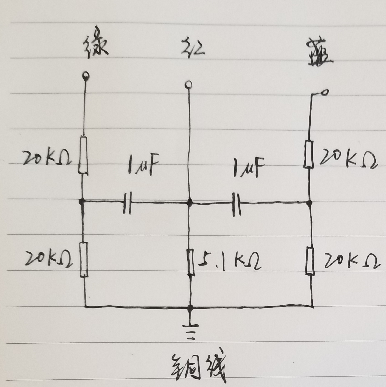 绿 红 蓝
20KΩ 1μF 1μF 20KΩ
20KΩ 5.1KΩ 20KΩ
铜线